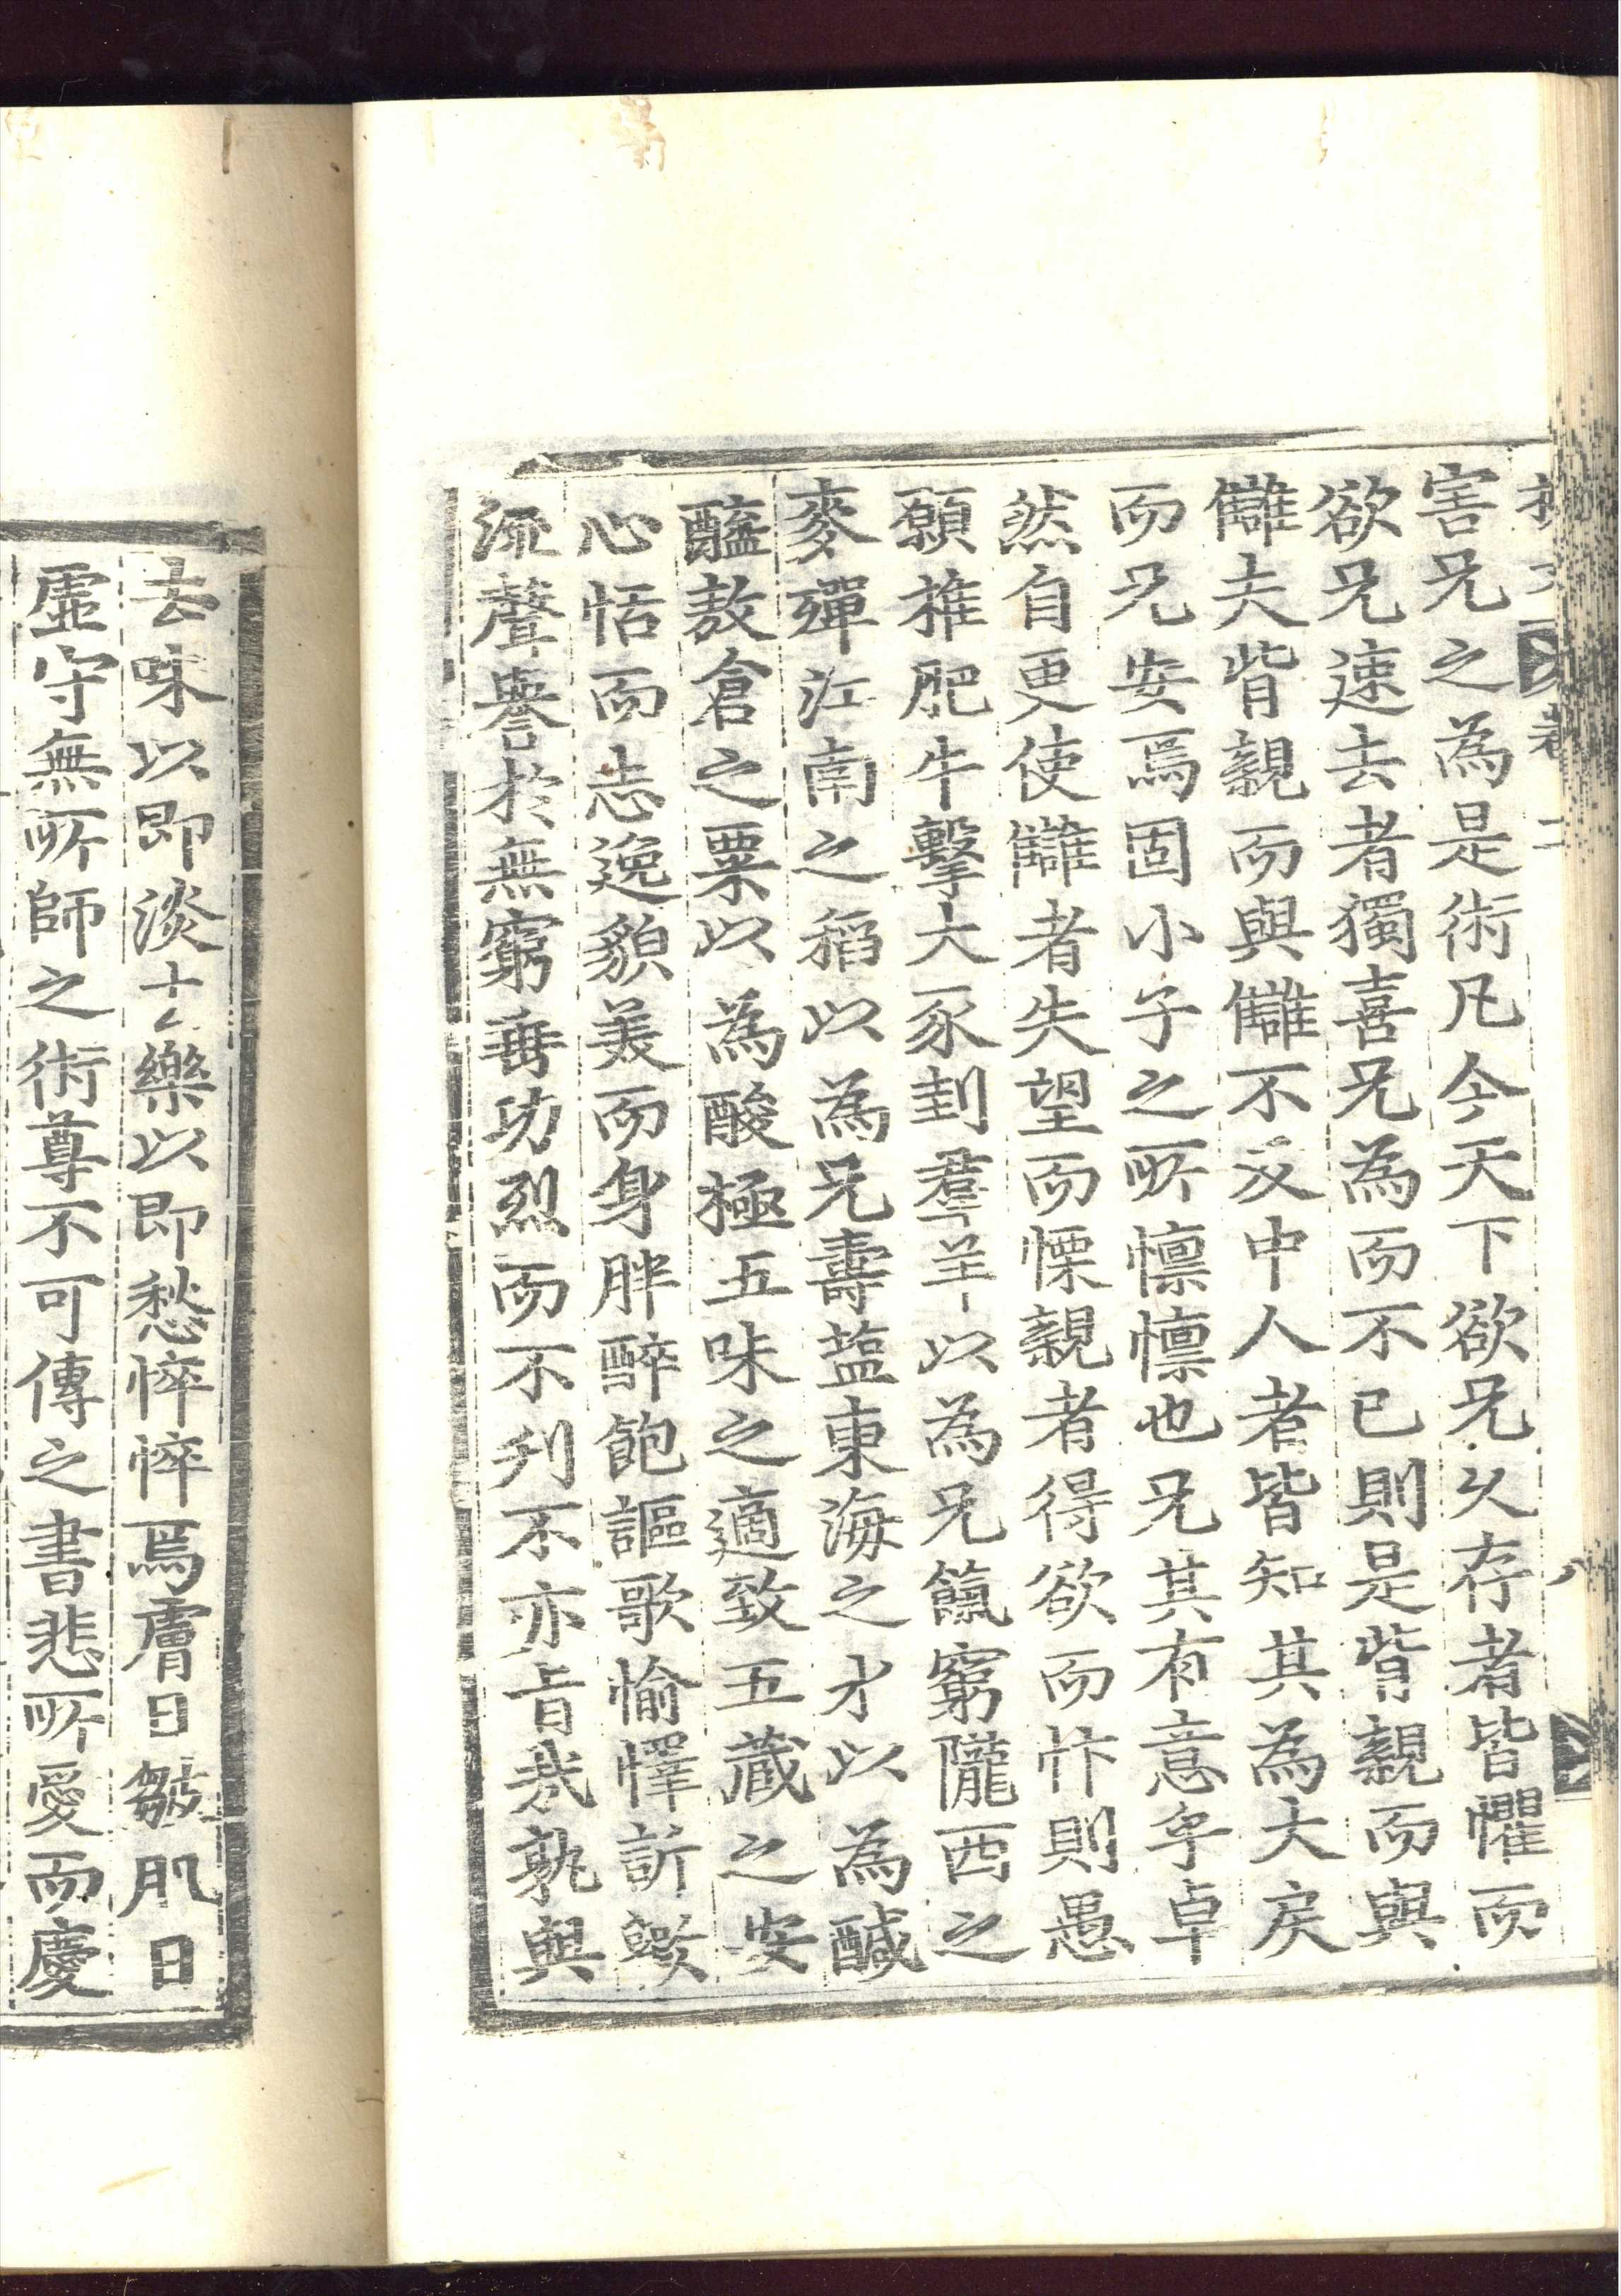 害兄之為是術凡今天下欲兄久存者皆懼而
欲兄速去者獨喜兄為而不已則是背親而與
讎夫背親而與讎不及中人者皆知其為大戾
而兄安焉固小子之所懔懔也兄其有意乎卓
然自更使讎者失望而慄親者得欲而忭則愚
願椎肥牛擊大豕刲羣羊以為兄餼窮隴西之
麥殫江南之稻以為兄壽盬東海之水以為醎
醯敖倉之粟以為酸極五味之適致五蔵之安
心恬而志逸貌美而身胖醉飽謳歌愉懌訢歡
流聲譽於無窮垂功烈而不刋不亦旨哉孰與
去味以即淡去樂以即愁悴悴焉膚日皺肌日
虛守無所師之術尊不可傳之書悲所愛而慶